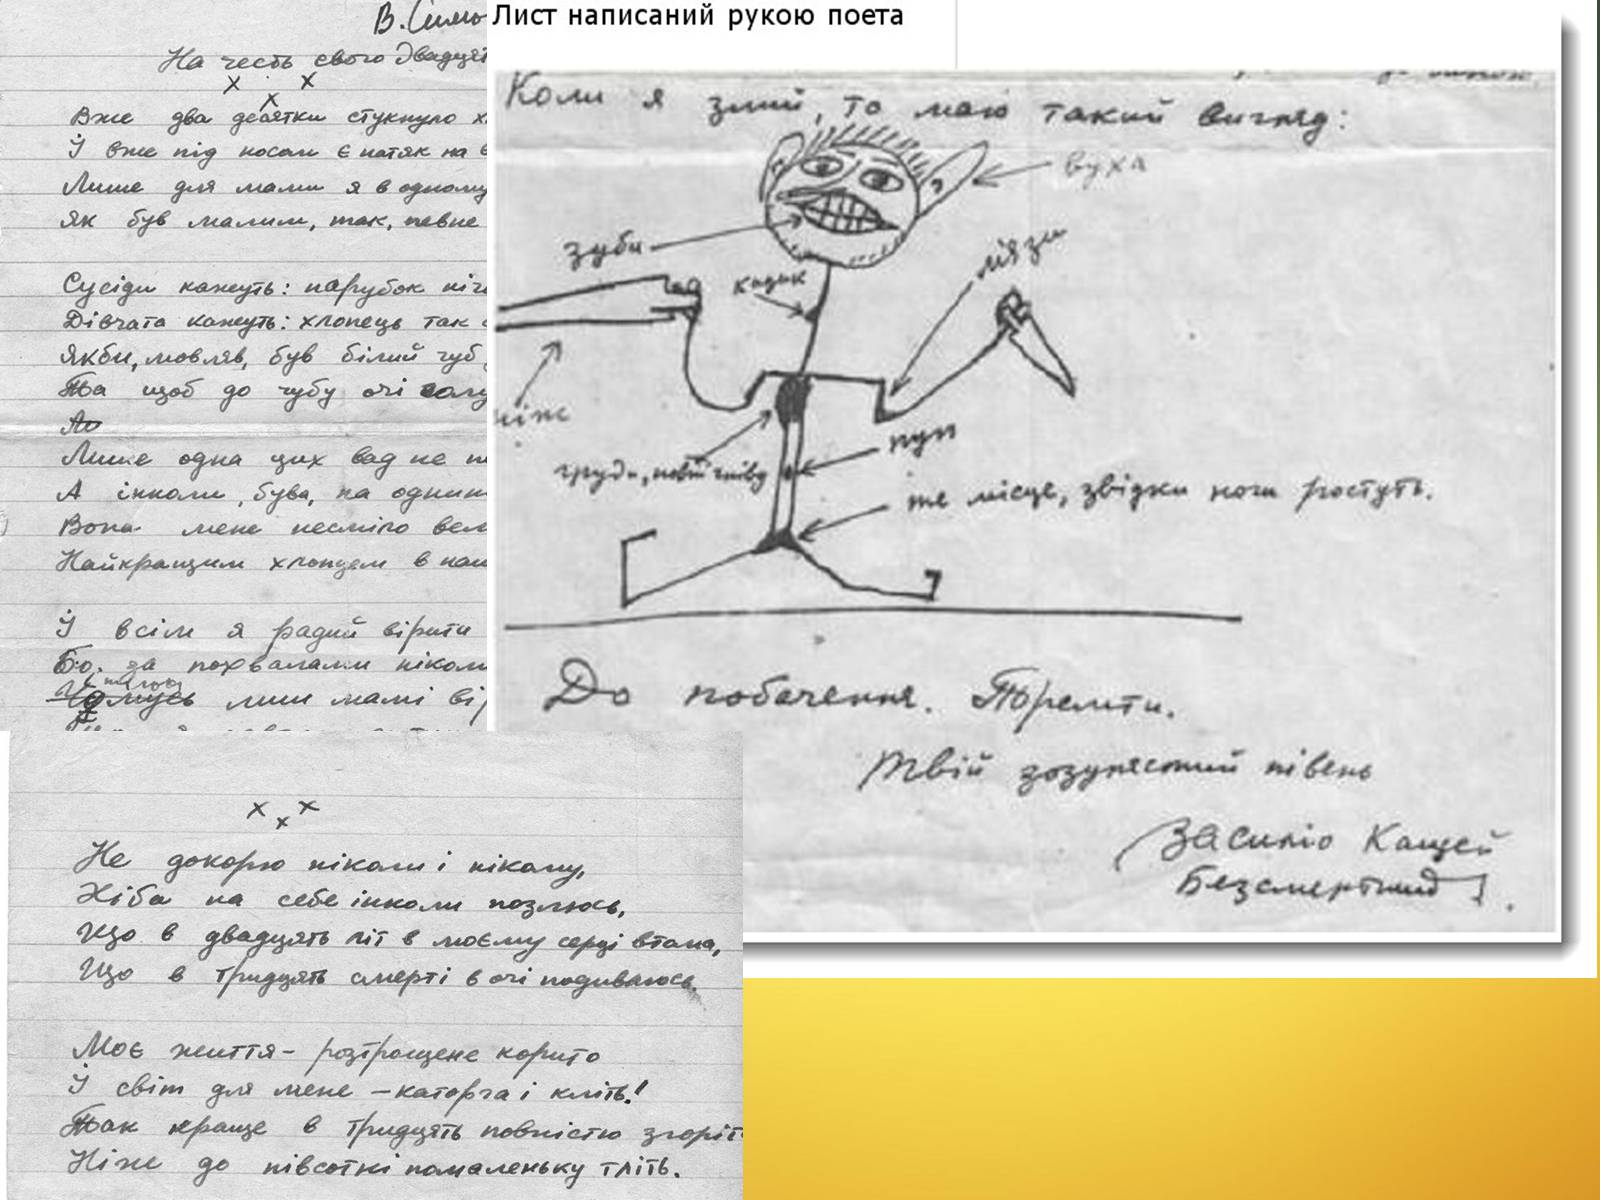 Лист написаний рукою поета
На честь свого двадцят
х х
х
Вже два десятки стукнуло х
І вже під носом є натяк на
Лише для мами я в одному
Як був малим, так, певне
Сусіди кажуть: парубок ніч
Дівчата кажуть: хлопець так
Якби, мовляв, був білий чуб
Та щоб до чубу очі
Лише одна цих вад не
А інколи, бува, на одини
Вона мене несміло вел
Найкращим хлопцем в наш
І всім я радий вірити
Бо за похвалами ніколи
лиш мамі
Коли я злий, то маю такий вигляд:
вуха
зуби
м'язи
кадик
ніж
пуп
груди, повні гніву
те місце, звідки ноги ростуть.
До побачення. Тремти.
Твій зозулястий півень
Василіо Кащей
Безсмертний.
х х
х
Не докорю ніколи і нікому,
Хіба на себе інколи позлюсь,
Що в двадцять літ в моєму серці втома,
Що в тридцять смерті в очі подивлюсь.
Моє життя – розтрощене корито
І світ для мене – каторга і кліть!
Так краще в тридцять повністю згоріт
Ніж до півсотні помаленьку тліть.